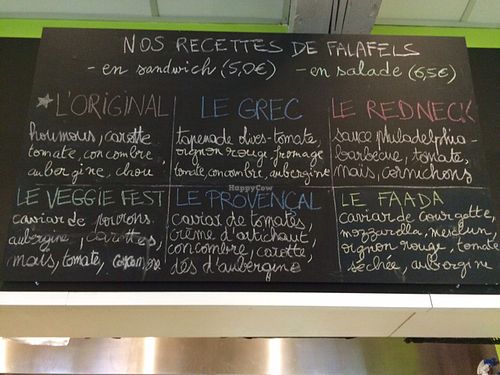 NOS RECETTES DE FALAFELS
- en sandwich (5,0€) - en salade (6,5€)
L'ORIGINAL
houmous, carotte
tomate, concombre,
aubergine, chou
LE GREC
tapenade olives-tomate,
oignon rouge, fromage
tomate, concombre, aubergine
LE REDNECK
sauce philadelphia-
barbecue, tomate,
maïs, cornichons
LE VEGGIE FEST
caviar de poivrons,
aubergine, carottes,
maïs, tomate, concombre
LE PROVENÇAL
caviar de tomates,
crème d'artichaut,
concombre, carotte,
dés d'aubergine
LE FAADA
caviar de courgette,
mozzarella, mesclun,
oignon rouge, tomate
séchée, aubergine
HappyCow